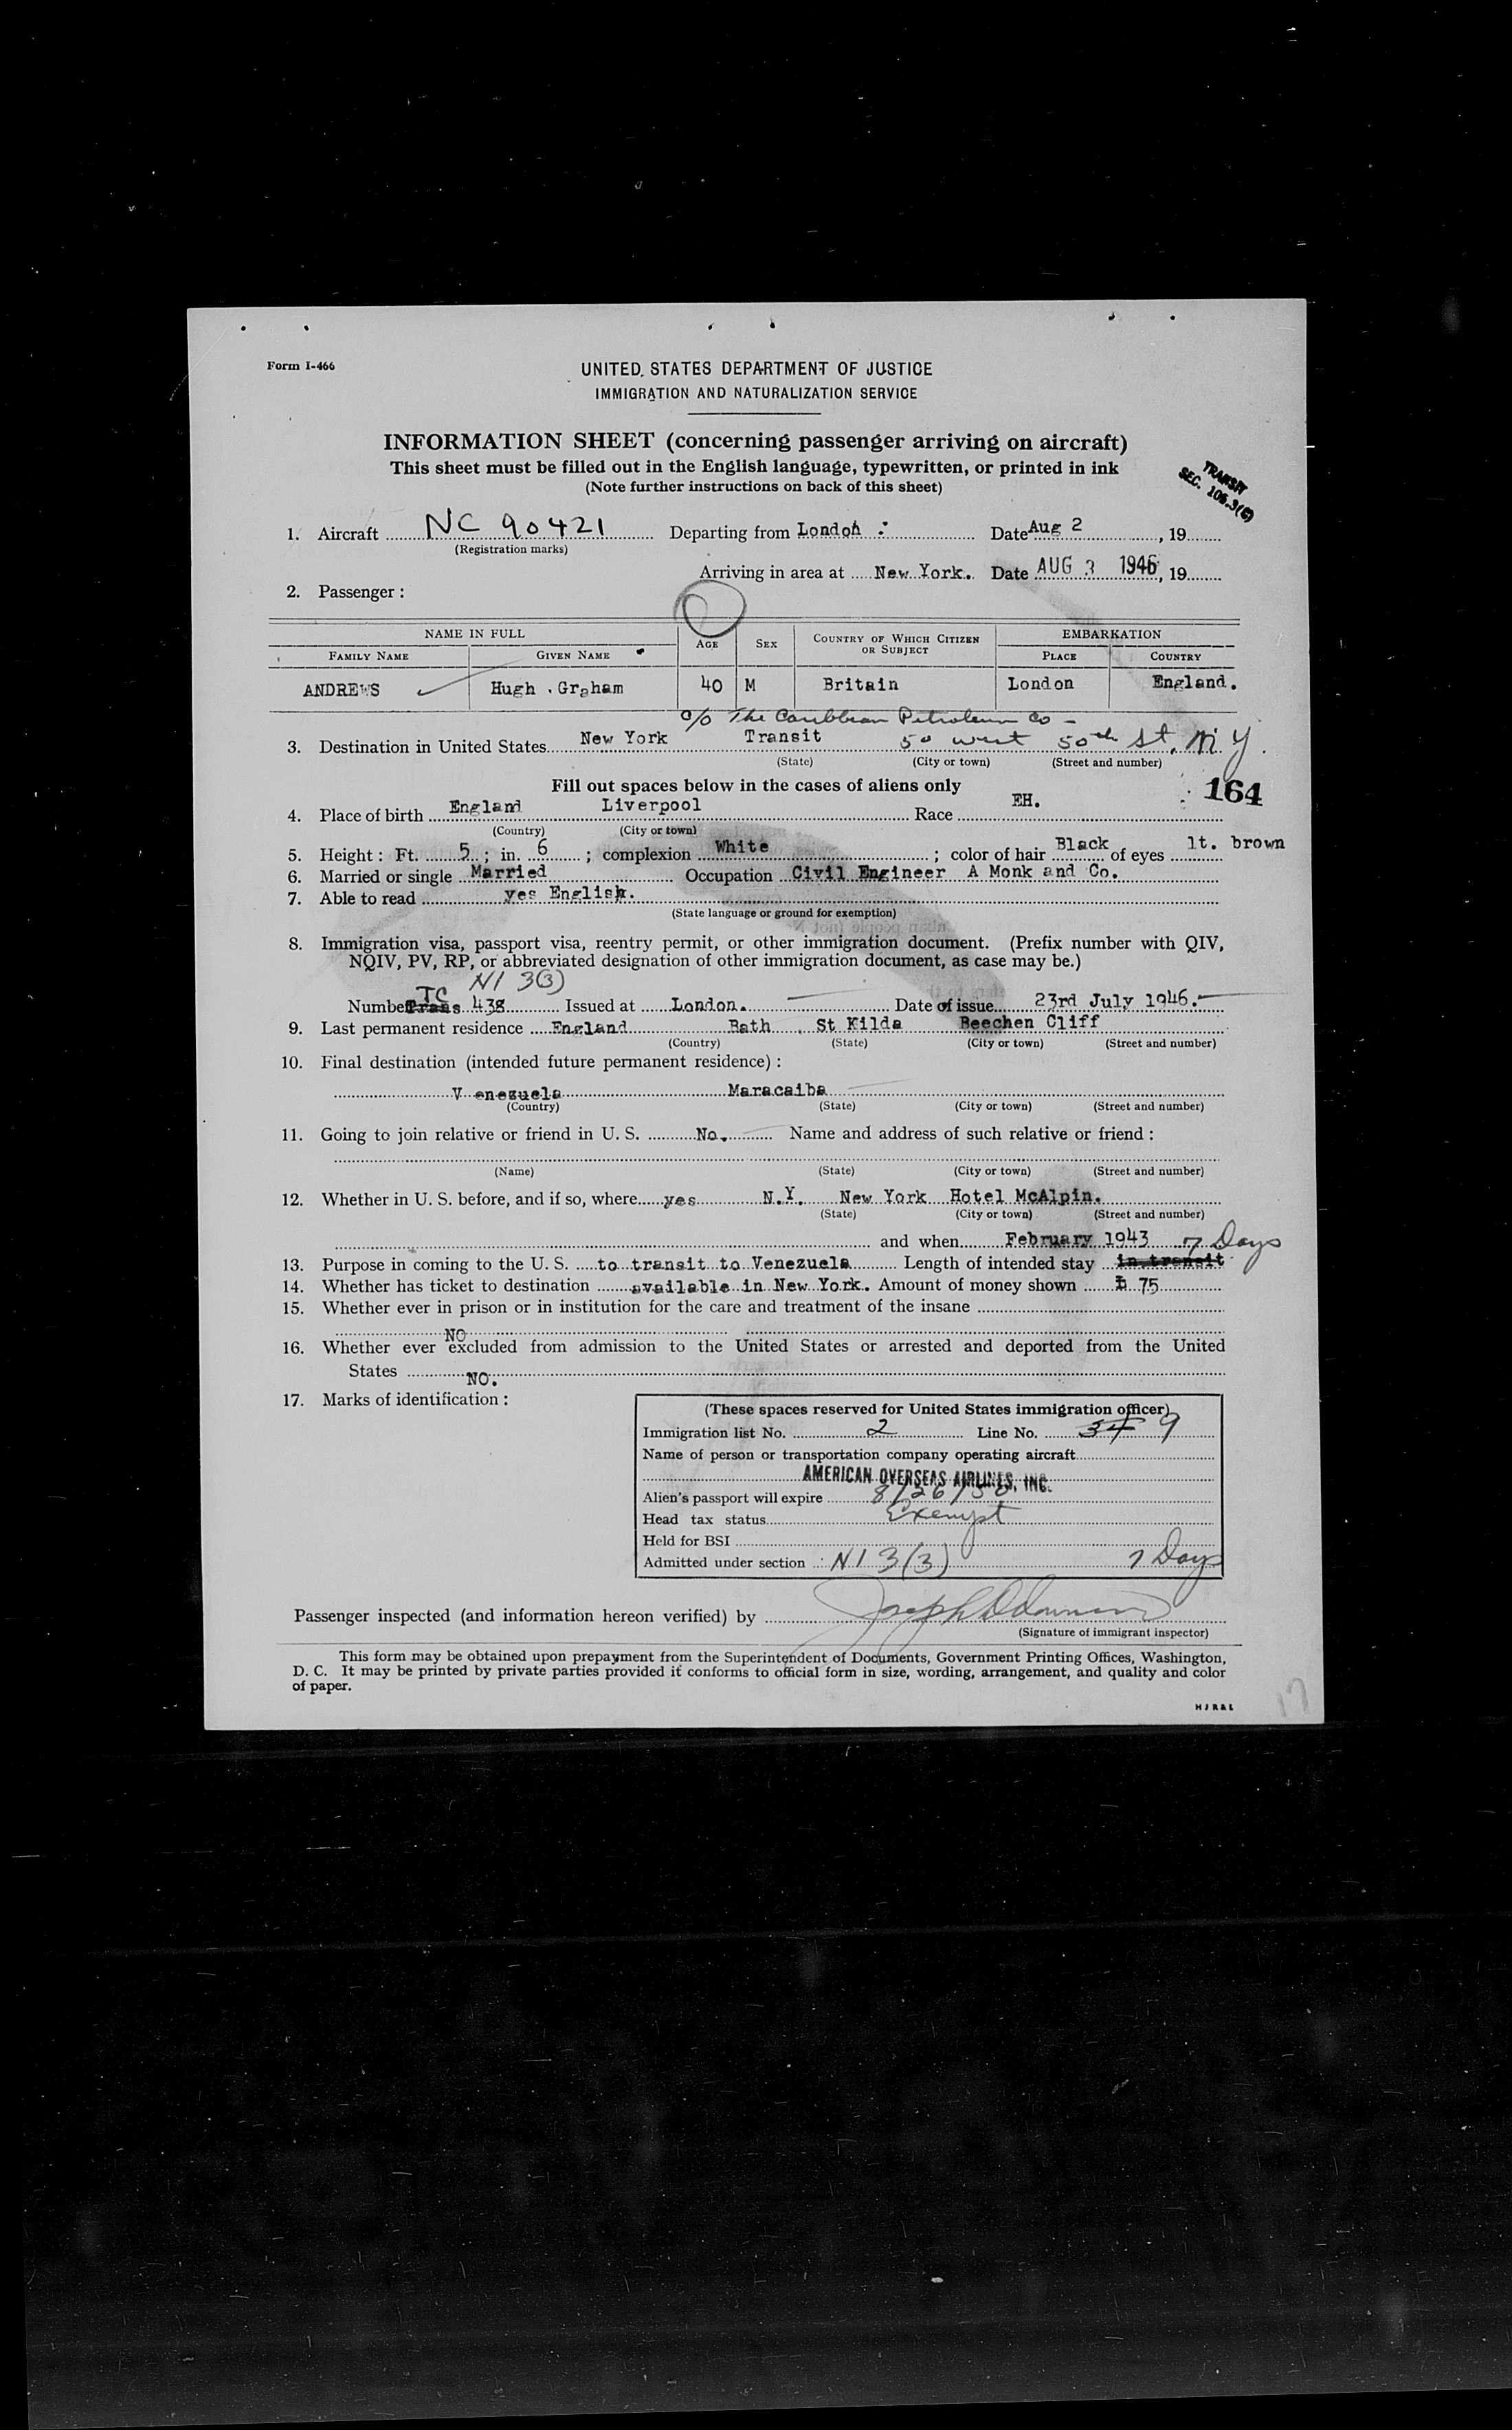 Form I-466
UNITED STATES DEPARTMENT OF JUSTICE
IMMIGRATION AND NATURALIZATION SERVICE
INFORMATION SHEET (concerning passenger arriving on aircraft)
This sheet must be filled out in the English language, typewritten, or printed in ink
(Note further instructions on back of this sheet)
TRANSIT
SEC. 106.3(6)
1. Aircraft NC 90421 Departing from London Date Aug 2, 19
(Registration marks)
Arriving in area at New York. Date AUG 3 1946, 19
2. Passenger:
NAME IN FULL AGE SEX COUNTRY OF WHICH CITIZEN OR SUBJECT EMBARKATION
FAMILY NAME GIVEN NAME PLACE COUNTRY
ANDREWS Hugh . Graham 40 M Britain London England.
c/o The Caribbean Petroleum Co -
3. Destination in United States New York Transit 50 west 50th St, N Y.
(State) (City or town) (Street and number)
Fill out spaces below in the cases of aliens only 164
4. Place of birth England Liverpool Race EH.
(Country) (City or town)
5. Height: Ft. 5; in. 6; complexion White; color of hair Black of eyes lt. brown
6. Married or single Married Occupation Civil Engineer A Monk and Co.
7. Able to read yes English.
(State language or ground for exemption)
8. Immigration visa, passport visa, reentry permit, or other immigration document. (Prefix number with QIV,
NQIV, PV, RP, or abbreviated designation of other immigration document, as case may be.)
TC NI 3(3)
Number Trans 438 Issued at London. Date of issue 23rd July 1946.
9. Last permanent residence England Bath St Kilda Beechen Cliff
(Country) (State) (City or town) (Street and number)
10. Final destination (intended future permanent residence):
V enezuela Maracaiba
(Country) (State) (City or town) (Street and number)
11. Going to join relative or friend in U. S. No. Name and address of such relative or friend:
(Name) (State) (City or town) (Street and number)
12. Whether in U. S. before, and if so, where yes N.Y. New York Hotel McAlpin.
(State) (City or town) (Street and number)
and when February 1943 7 Days
13. Purpose in coming to the U. S. to transit to Venezuela Length of intended stay in transit
14. Whether has ticket to destination available in New York. Amount of money shown £ 75
15. Whether ever in prison or in institution for the care and treatment of the insane
NO
16. Whether ever excluded from admission to the United States or arrested and deported from the United
States NO.
17. Marks of identification:
(These spaces reserved for United States immigration officer)
Immigration list No. 2 Line No. 34 9
Name of person or transportation company operating aircraft
AMERICAN OVERSEAS AIRLINES, INC.
Alien's passport will expire 8/26/50
Head tax status Exempt
Held for BSI
Admitted under section NI 3(3) 7 Days
Passenger inspected (and information hereon verified) by
(Signature of immigrant inspector)
This form may be obtained upon prepayment from the Superintendent of Documents, Government Printing Offices, Washington,
D. C. It may be printed by private parties provided it conforms to official form in size, wording, arrangement, and quality and color
of paper.
H J R & L
17